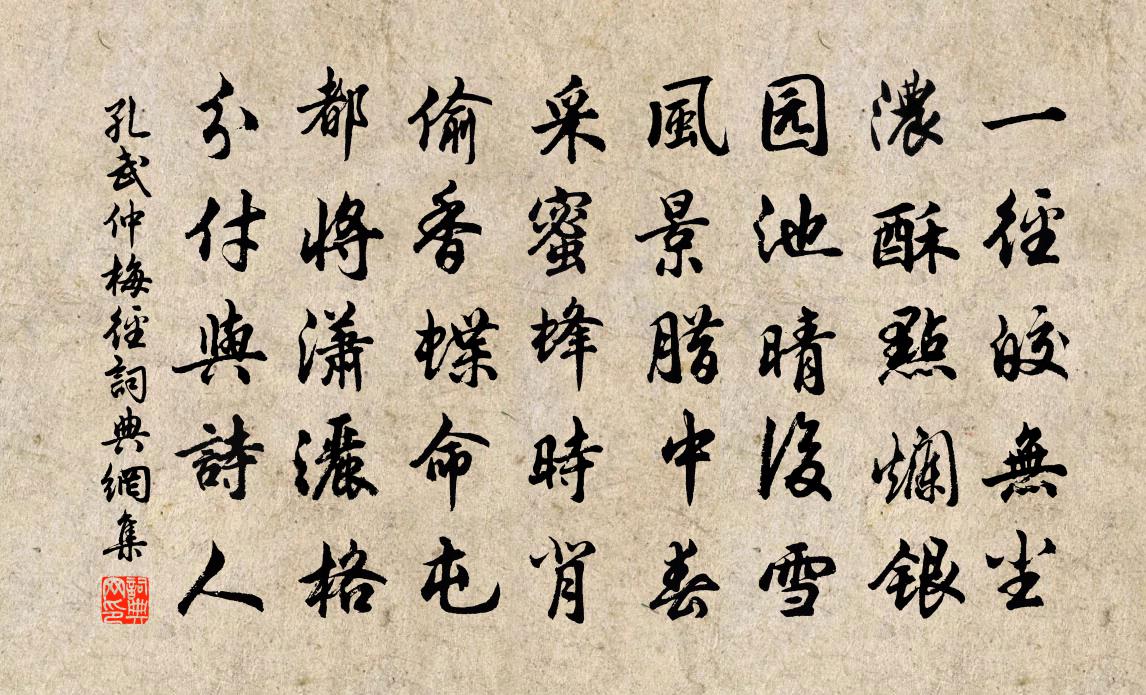 一徑皎無尘
濃酥點爛銀
园池晴後雪
風景腊中春
采蜜蜂時肖
偷香蝶命屯
都將瀟灑格
分付與詩人
孔武仲梅徑詞典網集
詞典
网印